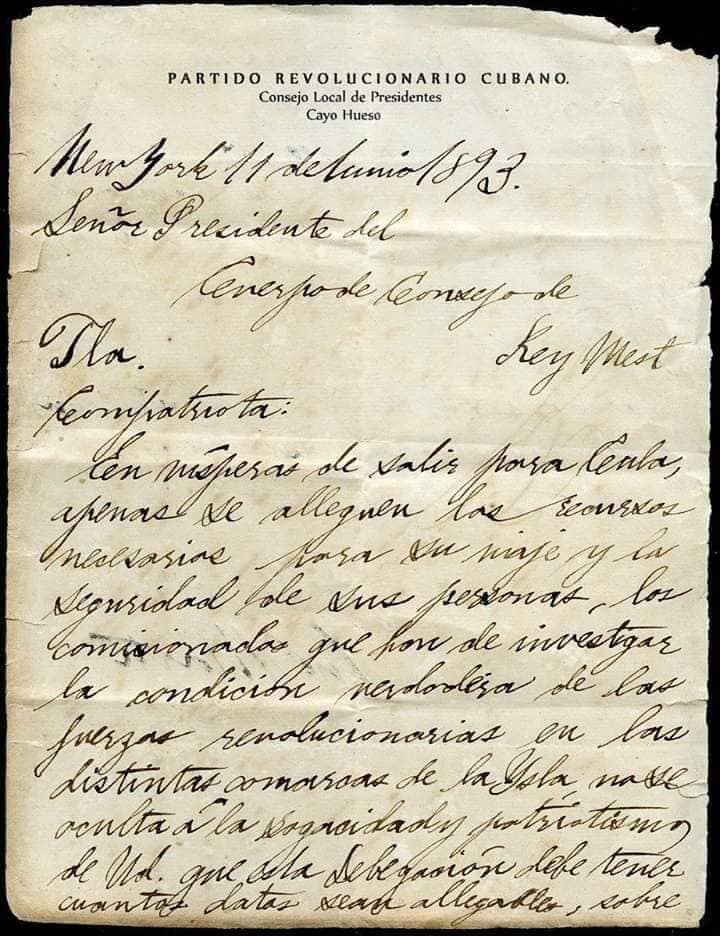 PARTIDO REVOLUCIONARIO CUBANO.
Consejo Local de Presidentes
Cayo Hueso
New York 11 de Junio 1893.
Señor Presidente del
Cuerpo de Consejo de
Key West
Compatriota:
En vísperas de salir para Cuba,
apenas se alleguen los recursos
necesarios para su viaje y la
seguridad de sus personas, los
comisionados que han de investigar
la condición verdadera de las
fuerzas revolucionarias en las
distintas comarcas de la Ysla, no se
oculta á la sagacidad y patriotismo
de Ud. que esta Delegación debe tener
cuantos datos sean allegables, sobre